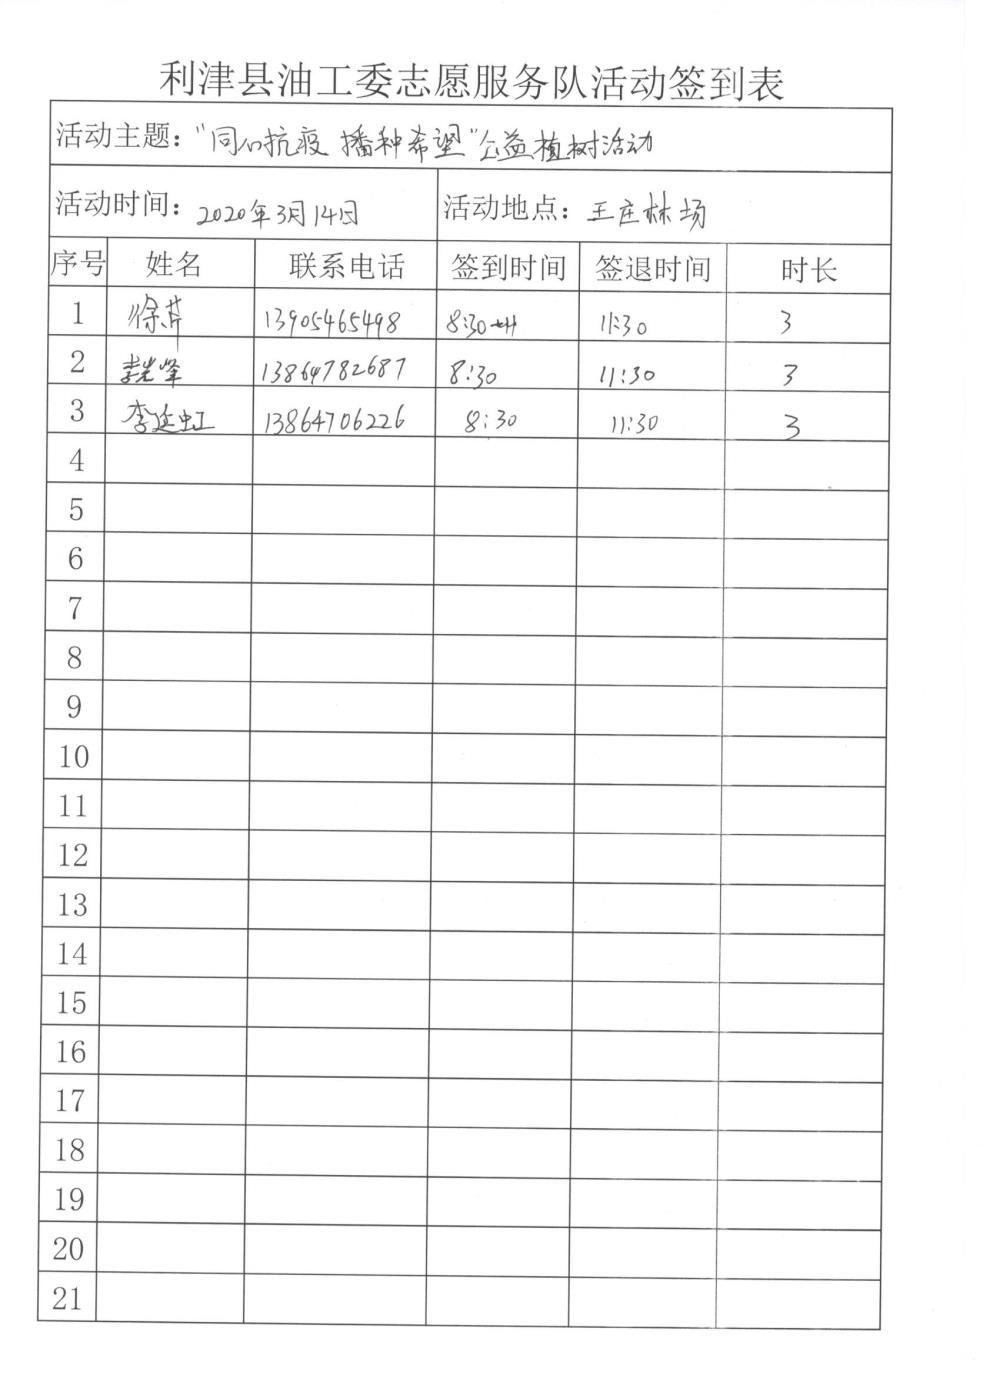 利津县油工委志愿服务队活动签到表
活动主题：“同心抗疫 播种希望”公益植树活动
活动时间：2020年3月14日 活动地点：王庄林场
序号 姓名 联系电话 签到时间 签退时间 时长
1 徐芹 13905465498 8:30 11:30 3
2 李光峰 13864782687 8:30 11:30 3
3 李延虹 13864706226 8:30 11:30 3
4
5
6
7
8
9
10
11
12
13
14
15
16
17
18
19
20
21